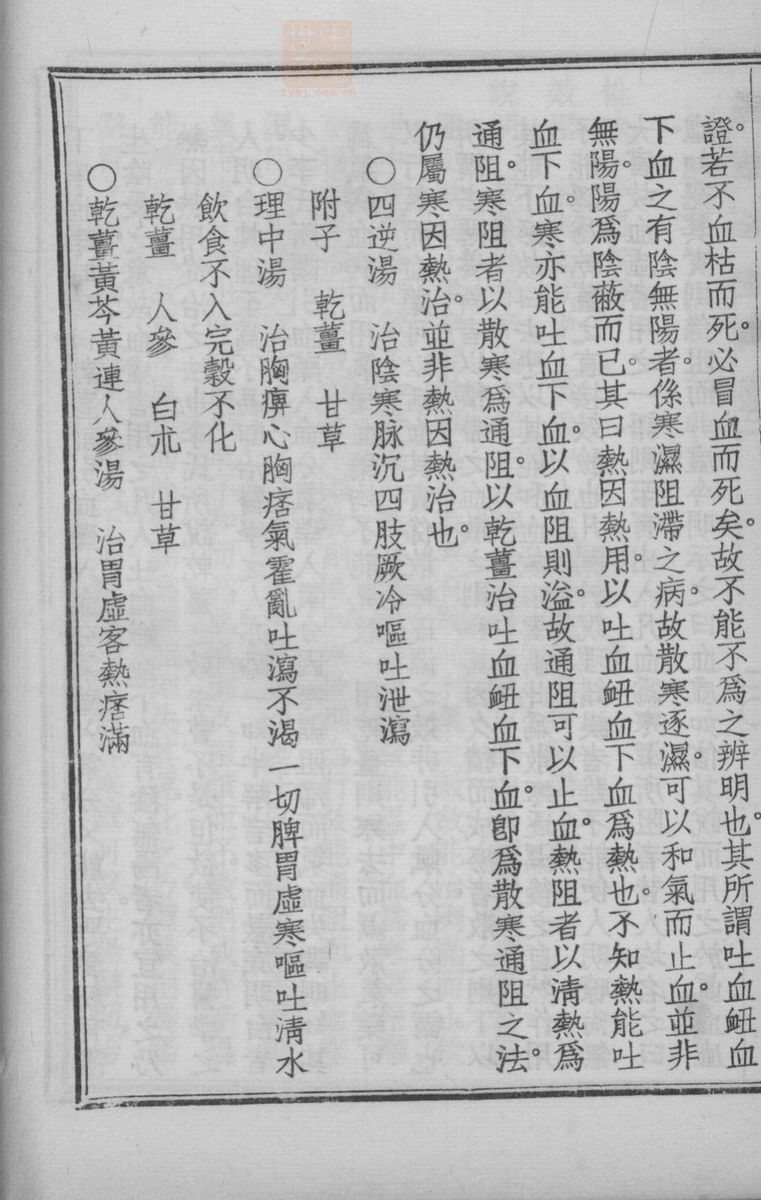 證。若不血枯而死。必冒血而死矣。故不能不爲之辨明也。其所謂吐血衄血
下血之有陰無陽者。係寒濕阻滯之病。故散寒逐濕。可以和氣而止血。並非
無陽。陽爲陰蔽而已。其曰熱因熱用。以吐血衄血下血爲熱也。不知熱能吐
血下血。寒亦能吐血下血。以血阻則溢。故通阻可以止血。熱阻者以清熱爲
通阻。寒阻者以散寒爲通阻。以乾薑治吐血衄血下血。卽爲散寒通阻之法。
仍屬寒因熱治。並非熱因熱治也。
○四逆湯　治陰寒脉沉四肢厥冷嘔吐泄瀉
附子　乾薑　甘草
○理中湯　治胸痹心胸痞氣霍亂吐瀉不渴一切脾胃虛寒嘔吐淸水
飲食不入完穀不化
乾薑　人參　白朮　甘草
○乾薑黃芩黃連人參湯　治胃虛客熱痞滿
zysj.com.cn